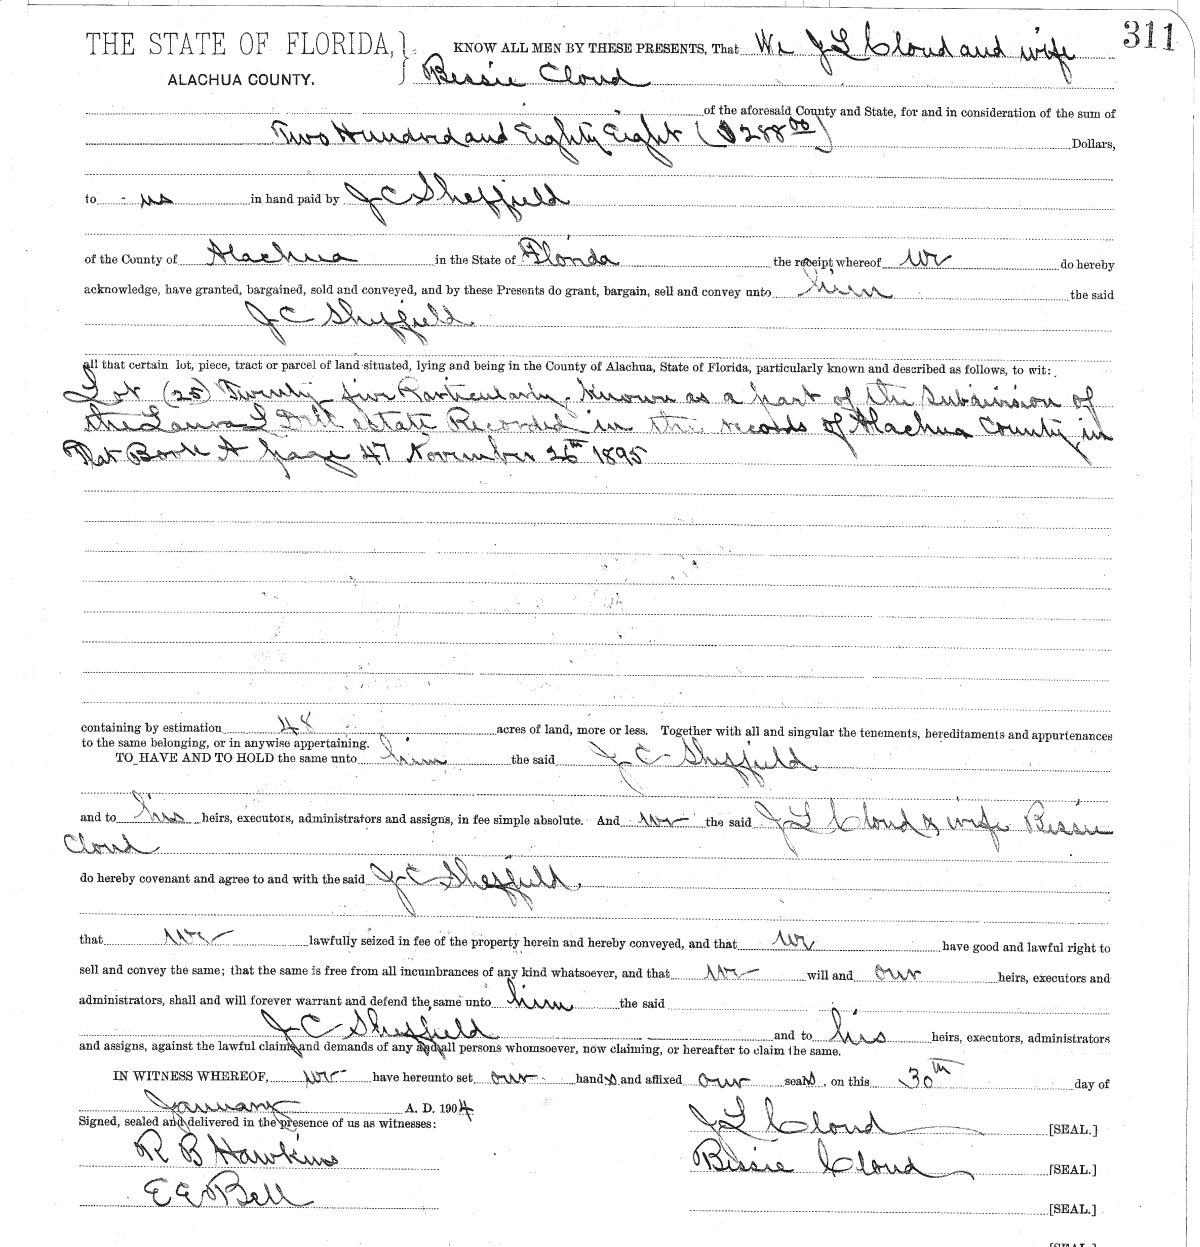 311
THE STATE OF FLORIDA,
ALACHUA COUNTY.
KNOW ALL MEN BY THESE PRESENTS, That We J L Cloud and wife
Bessie Cloud
of the aforesaid County and State, for and in consideration of the sum of
Two Hundred and Eighty Eight ($288 00) Dollars,
to us in hand paid by J C Sheffield
of the County of Alachua in the State of Florida the receipt whereof we do hereby
acknowledge, have granted, bargained, sold and conveyed, and by these Presents do grant, bargain, sell and convey unto him the said
J C Sheffield
all that certain lot, piece, tract or parcel of land situated, lying and being in the County of Alachua, State of Florida, particularly known and described as follows, to wit:
Lot (25) Twenty-five Particularly known as a part of the Subdivision of
the L Dell estate Recorded in the records of Alachua County in
Plat Book A page 47 November 26th 1895
containing by estimation 48 acres of land, more or less. Together with all and singular the tenements, hereditaments and appurtenances
to the same belonging, or in anywise appertaining.
TO HAVE AND TO HOLD the same unto him the said J C Sheffield
and to his heirs, executors, administrators and assigns, in fee simple absolute. And we the said J L Cloud & wife Bessie
Cloud
do hereby covenant and agree to and with the said J C Sheffield
that we lawfully seized in fee of the property herein and hereby conveyed, and that we have good and lawful right to
sell and convey the same; that the same is free from all incumbrances of any kind whatsoever, and that we will and our heirs, executors and
administrators, shall and will forever warrant and defend the same unto him the said
J C Sheffield and to his heirs, executors, administrators
and assigns, against the lawful claims and demands of any and all persons whomsoever, now claiming, or hereafter to claim the same.
IN WITNESS WHEREOF, we have hereunto set our hands and affixed our seals, on this 30th day of
January A. D. 1904
Signed, sealed and delivered in the presence of us as witnesses:
J L Cloud [SEAL.]
R B Hawkins
Bessie Cloud [SEAL.]
E E Bell
[SEAL.]